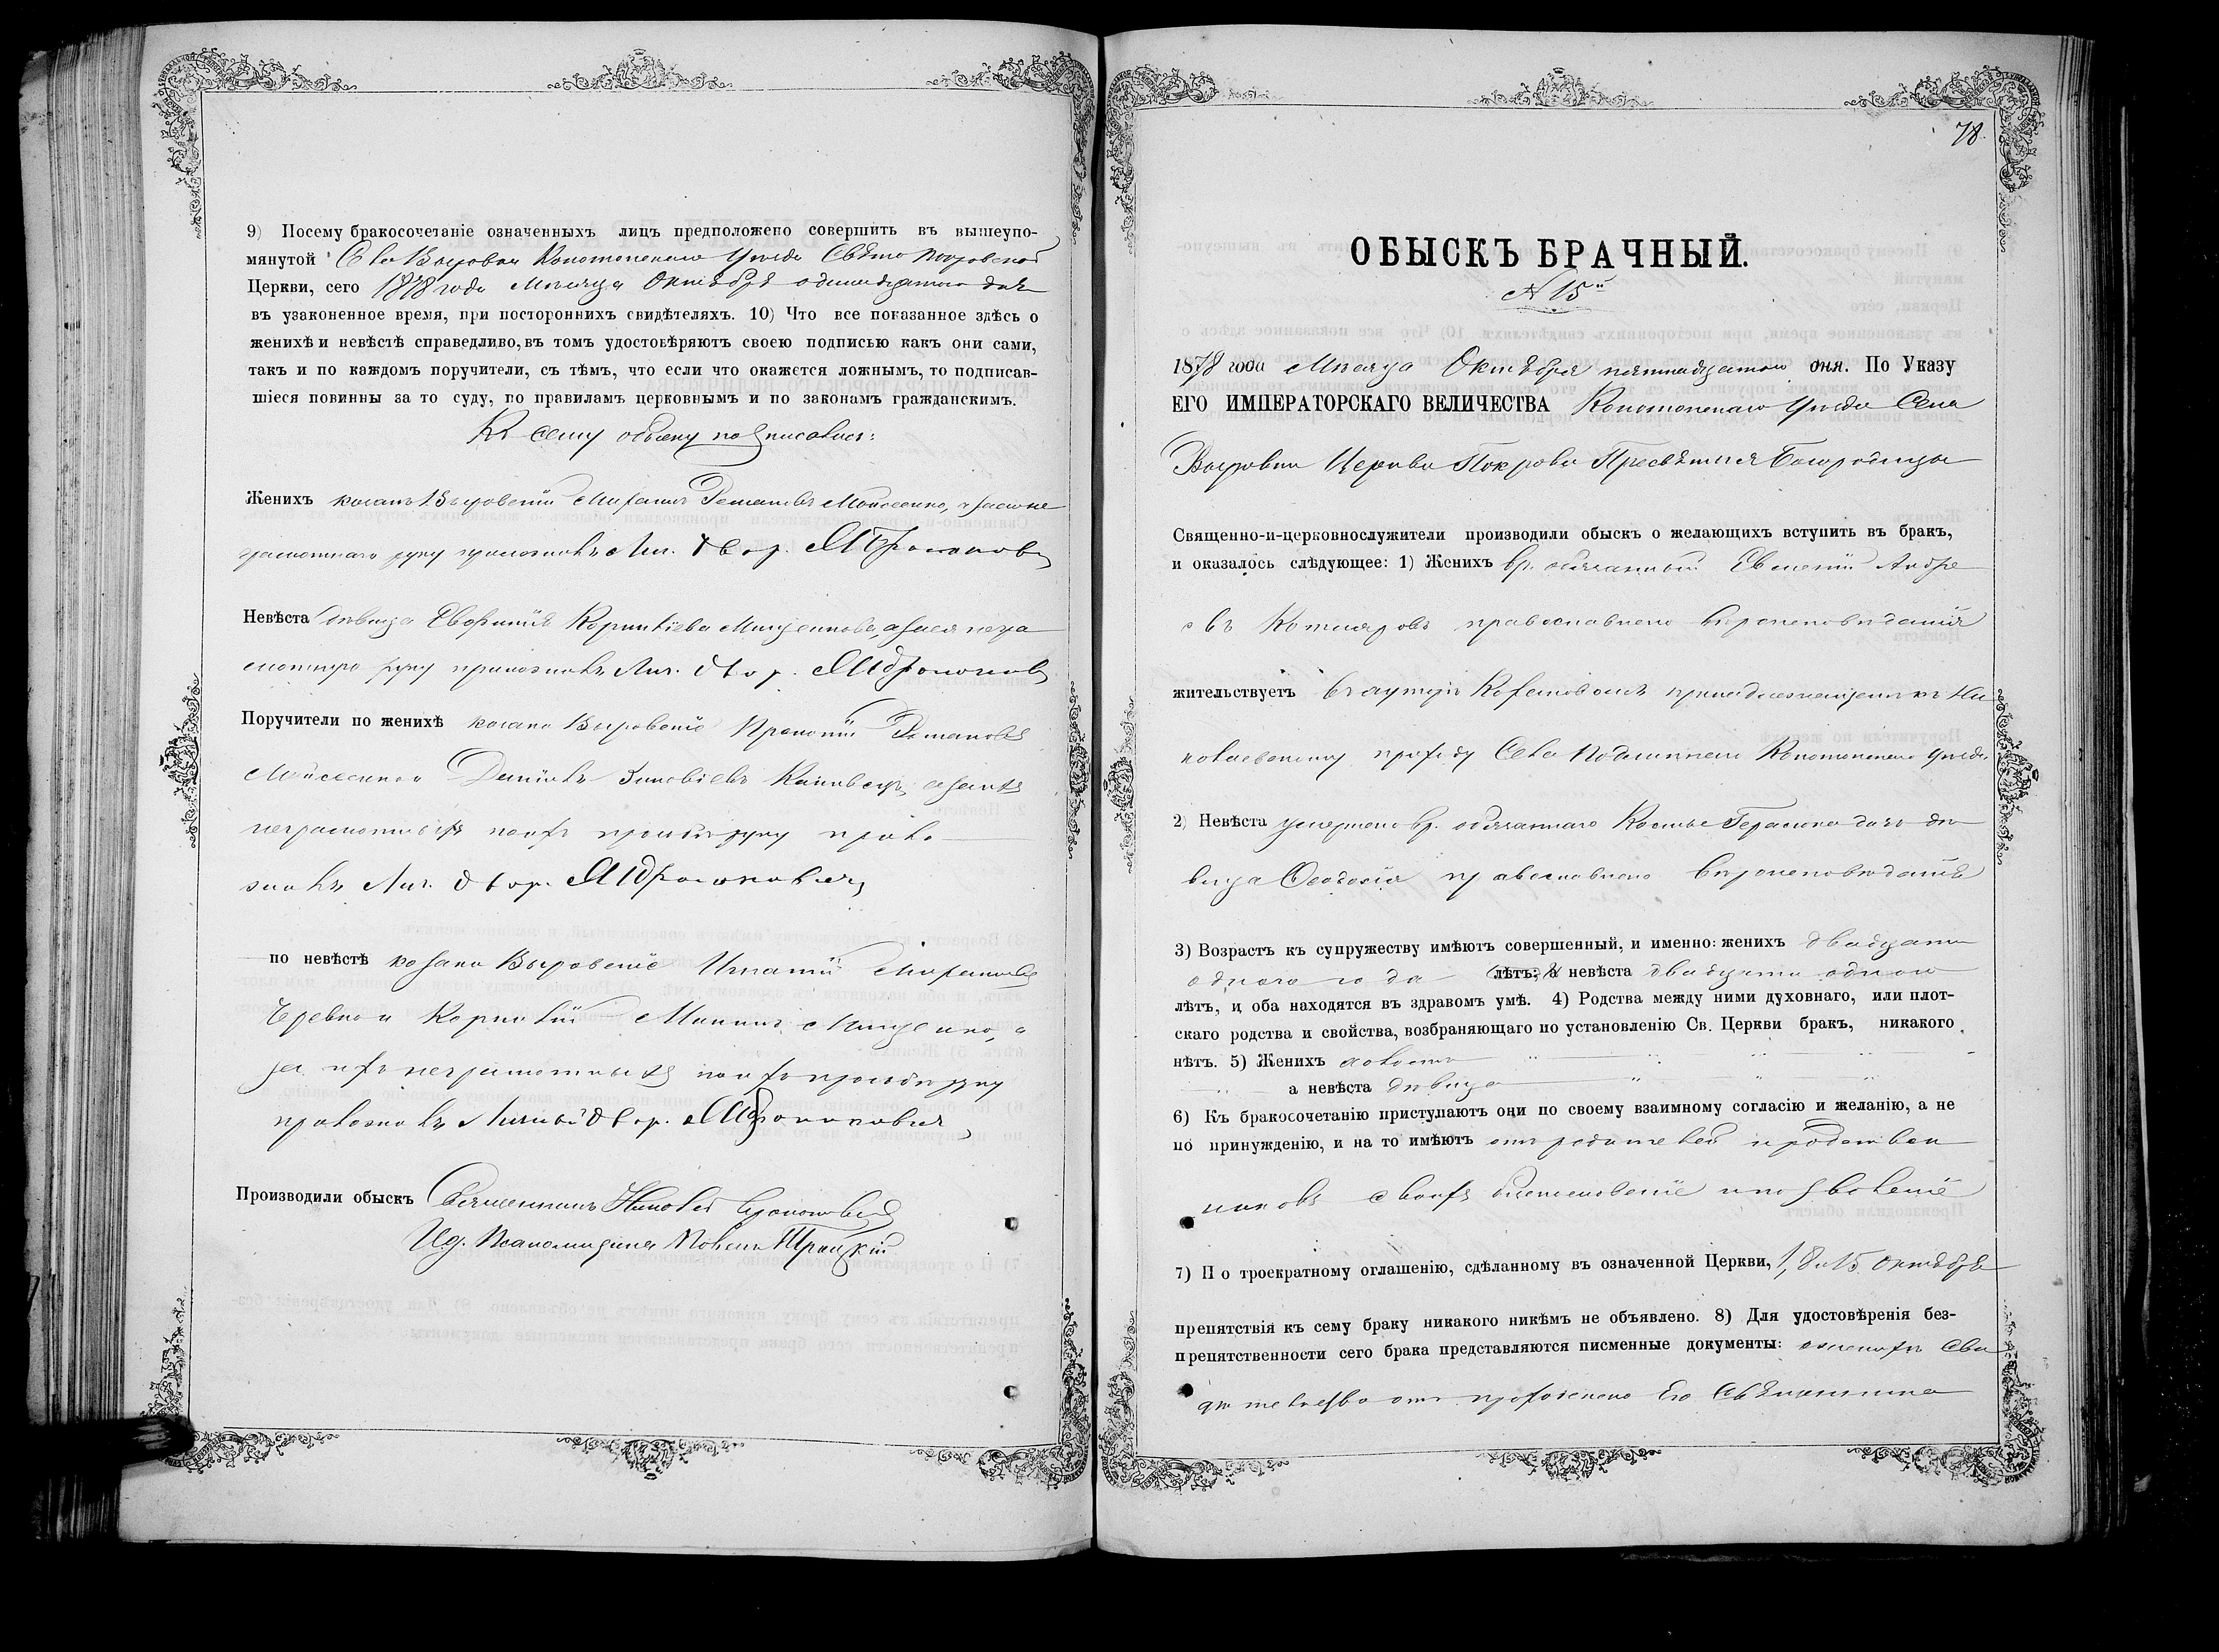 9) Посему бракосочетаніе означенныхъ лицъ предположено совершить въ вышеупо-
мянутой Села Вырровки Конотопскаго Уѣзда Свято Покровской
Церкви, сего 1878 года Мѣсяца Октября одинадцатаго дня
въ узаконенное время, при постороннихъ свидѣтеляхъ. 10) Что все показанное здѣсь о
женихѣ и невѣстѣ справедливо, въ томъ удостовѣряютъ своею подписью какъ они сами,
такъ и по каждомъ поручители, съ тѣмъ, что если что окажется ложнымъ, то подписав-
шіеся повинны за то суду, по правиламъ церковнымъ и по законамъ гражданскимъ.
Къ сему обыску подписались:
Женихъ козакъ Романовъ Моисеенко, а за него
грамотнаго руку приложилъ Лич. двор.
Невѣста дѣвица Корниліева а за нея негра
мотную руку приложилъ Лич. двор.
Поручители по женихѣ козаки Прокопій Романовъ
Даніилъ Зиновіевъ а за нихъ
неграмотныхъ по ихъ прозьбѣ руку прило
жилъ Лич. двор.
по невѣстѣ козаки Игнатій
Корнилій а
за ихъ неграмотныхъ по ихъ прозьбѣ руку
приложилъ Личный двор.
Производили обыскъ Священникъ Николай
Ид. Псаломщика Павелъ Троцкій
78.
ОБЫСКЪ БРАЧНЫЙ.
№ 15й
1878 года Мѣсяца Октября пятнадцатаго дня. По Указу
ЕГО ИМПЕРАТОРСКАГО ВЕЛИЧЕСТВА Конотопскаго Уѣзда Села
Церкви Покрова Пресвятыя Богородицы
Священно-и-церковнослужители производили обыскъ о желающихъ вступить въ бракъ,
и оказалось слѣдующее: 1) Женихъ вр. обязанный Евменій Андре
евъ Котляровъ православнаго вѣроисповѣданія
жительствуетъ въ хуторѣ принадлежащемъ къ Ни
колаевскому приходу Села Подлипнаго Конотопскаго Уѣзда
2) Невѣста умершаго вр. обязаннаго Герасима дочь дѣ
вица Ѳеодосія православнаго вѣроисповѣданія
3) Возрастъ къ супружеству имѣютъ совершенный, и именно: женихъ двадцати
одного года лѣтъ; а невѣста двадцати одного
лѣтъ, и оба находятся въ здравомъ умѣ. 4) Родства между ними духовнаго, или плот-
скаго родства и свойства, возбраняющаго по установленію Св. Церкви бракъ, никакого
нѣтъ. 5) Женихъ холостъ
а невѣста дѣвица
6) Къ бракосочетанію приступаютъ они по своему взаимному согласію и желанію, а не
по принужденію, и на то имѣютъ отъ родителей и родствен
никовъ своихъ благословеніе и позволеніе
7) П о троекратному оглашенію, сдѣланному въ означенной Церкви, 1, 8 и 15 Октября
препятствія къ сему браку никакого никѣмъ не объявлено. 8) Для удостовѣренія без-
препятственности сего брака представляются писменные документы: о женихѣ сви
дѣтельство отъ приходскаго Его Священника